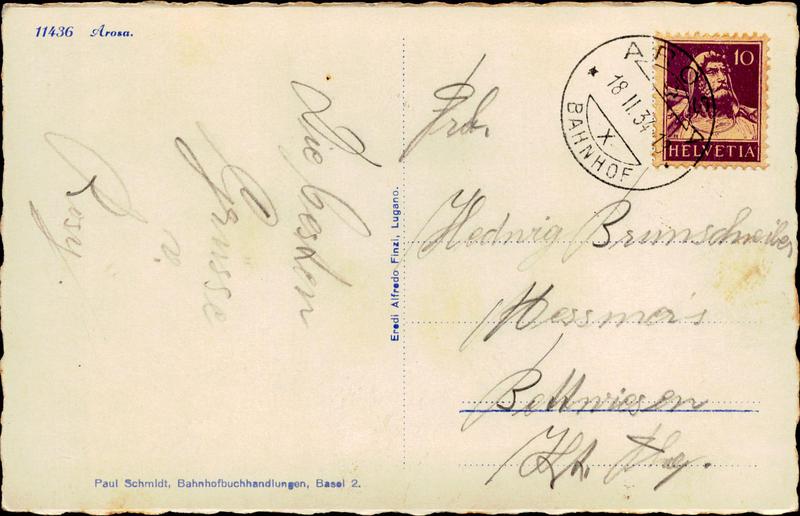 11436 Arosa.
Die besten
Grüsse
v.
Rosy.
Eredi Alfredo Finzi, Lugano.
Paul Schmidt, Bahnhofbuchhandlungen, Basel 2.
AROSA
18 II 34
X
BAHNHOF
10
HELVETIA
Frl.
Hedwig Brunschwiler
Messmer's
Bettwiesen
Kt. Thg.